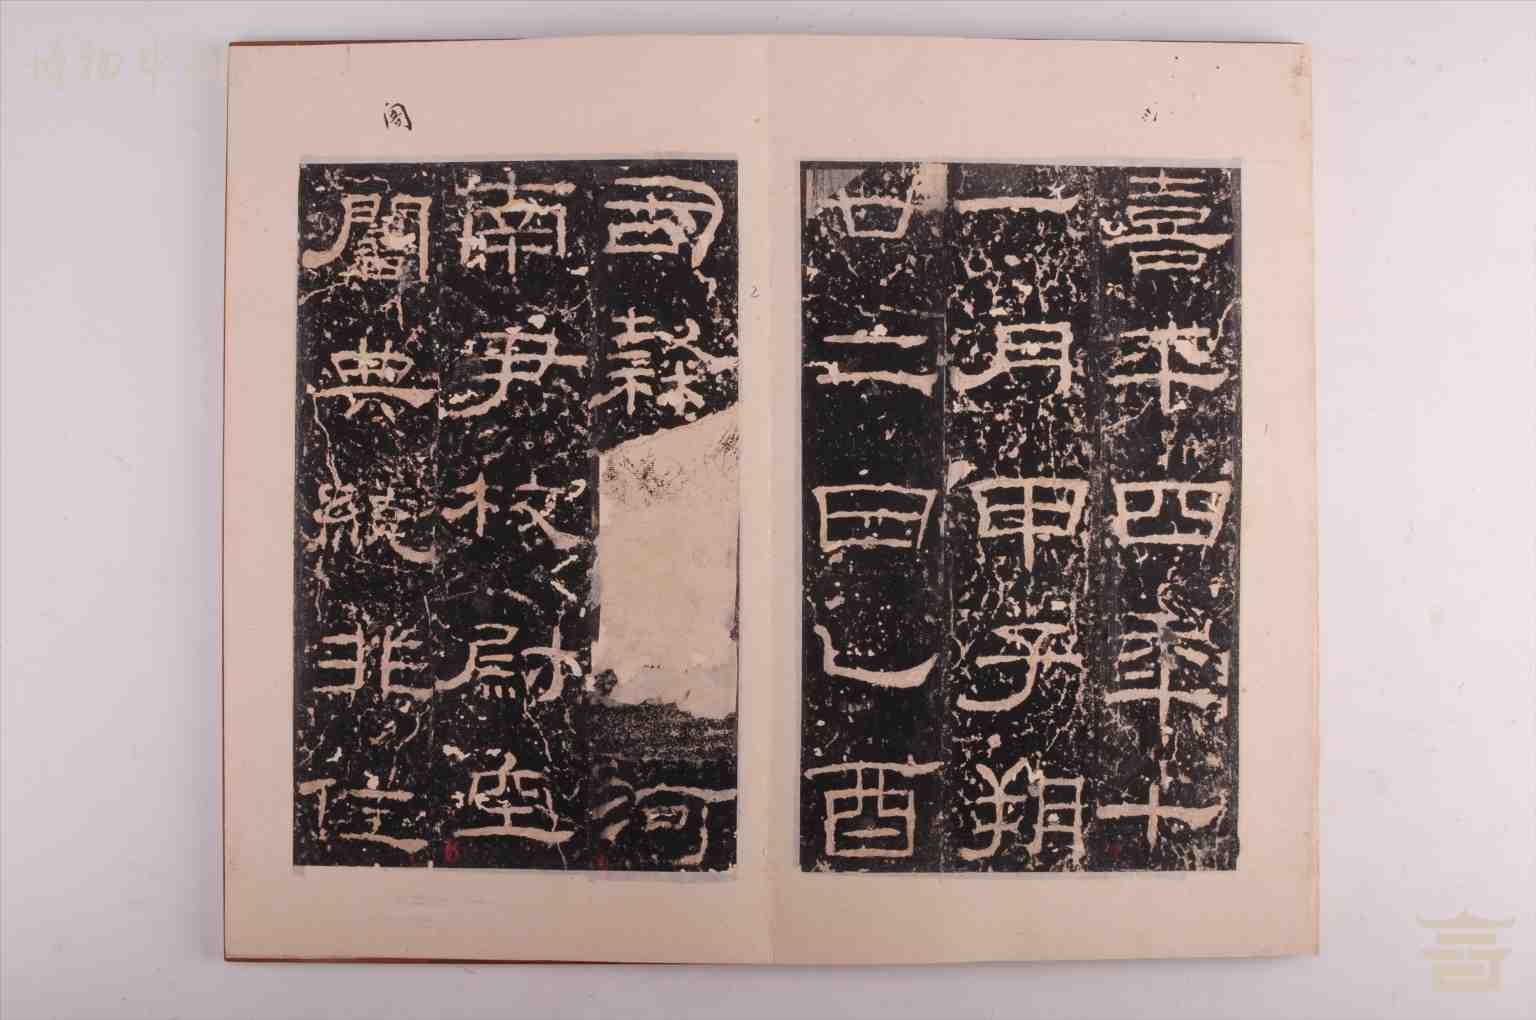 熹平四年十
一月甲子朔
廿二日乙酉
司隸河
南尹校尉空
闇典統非任